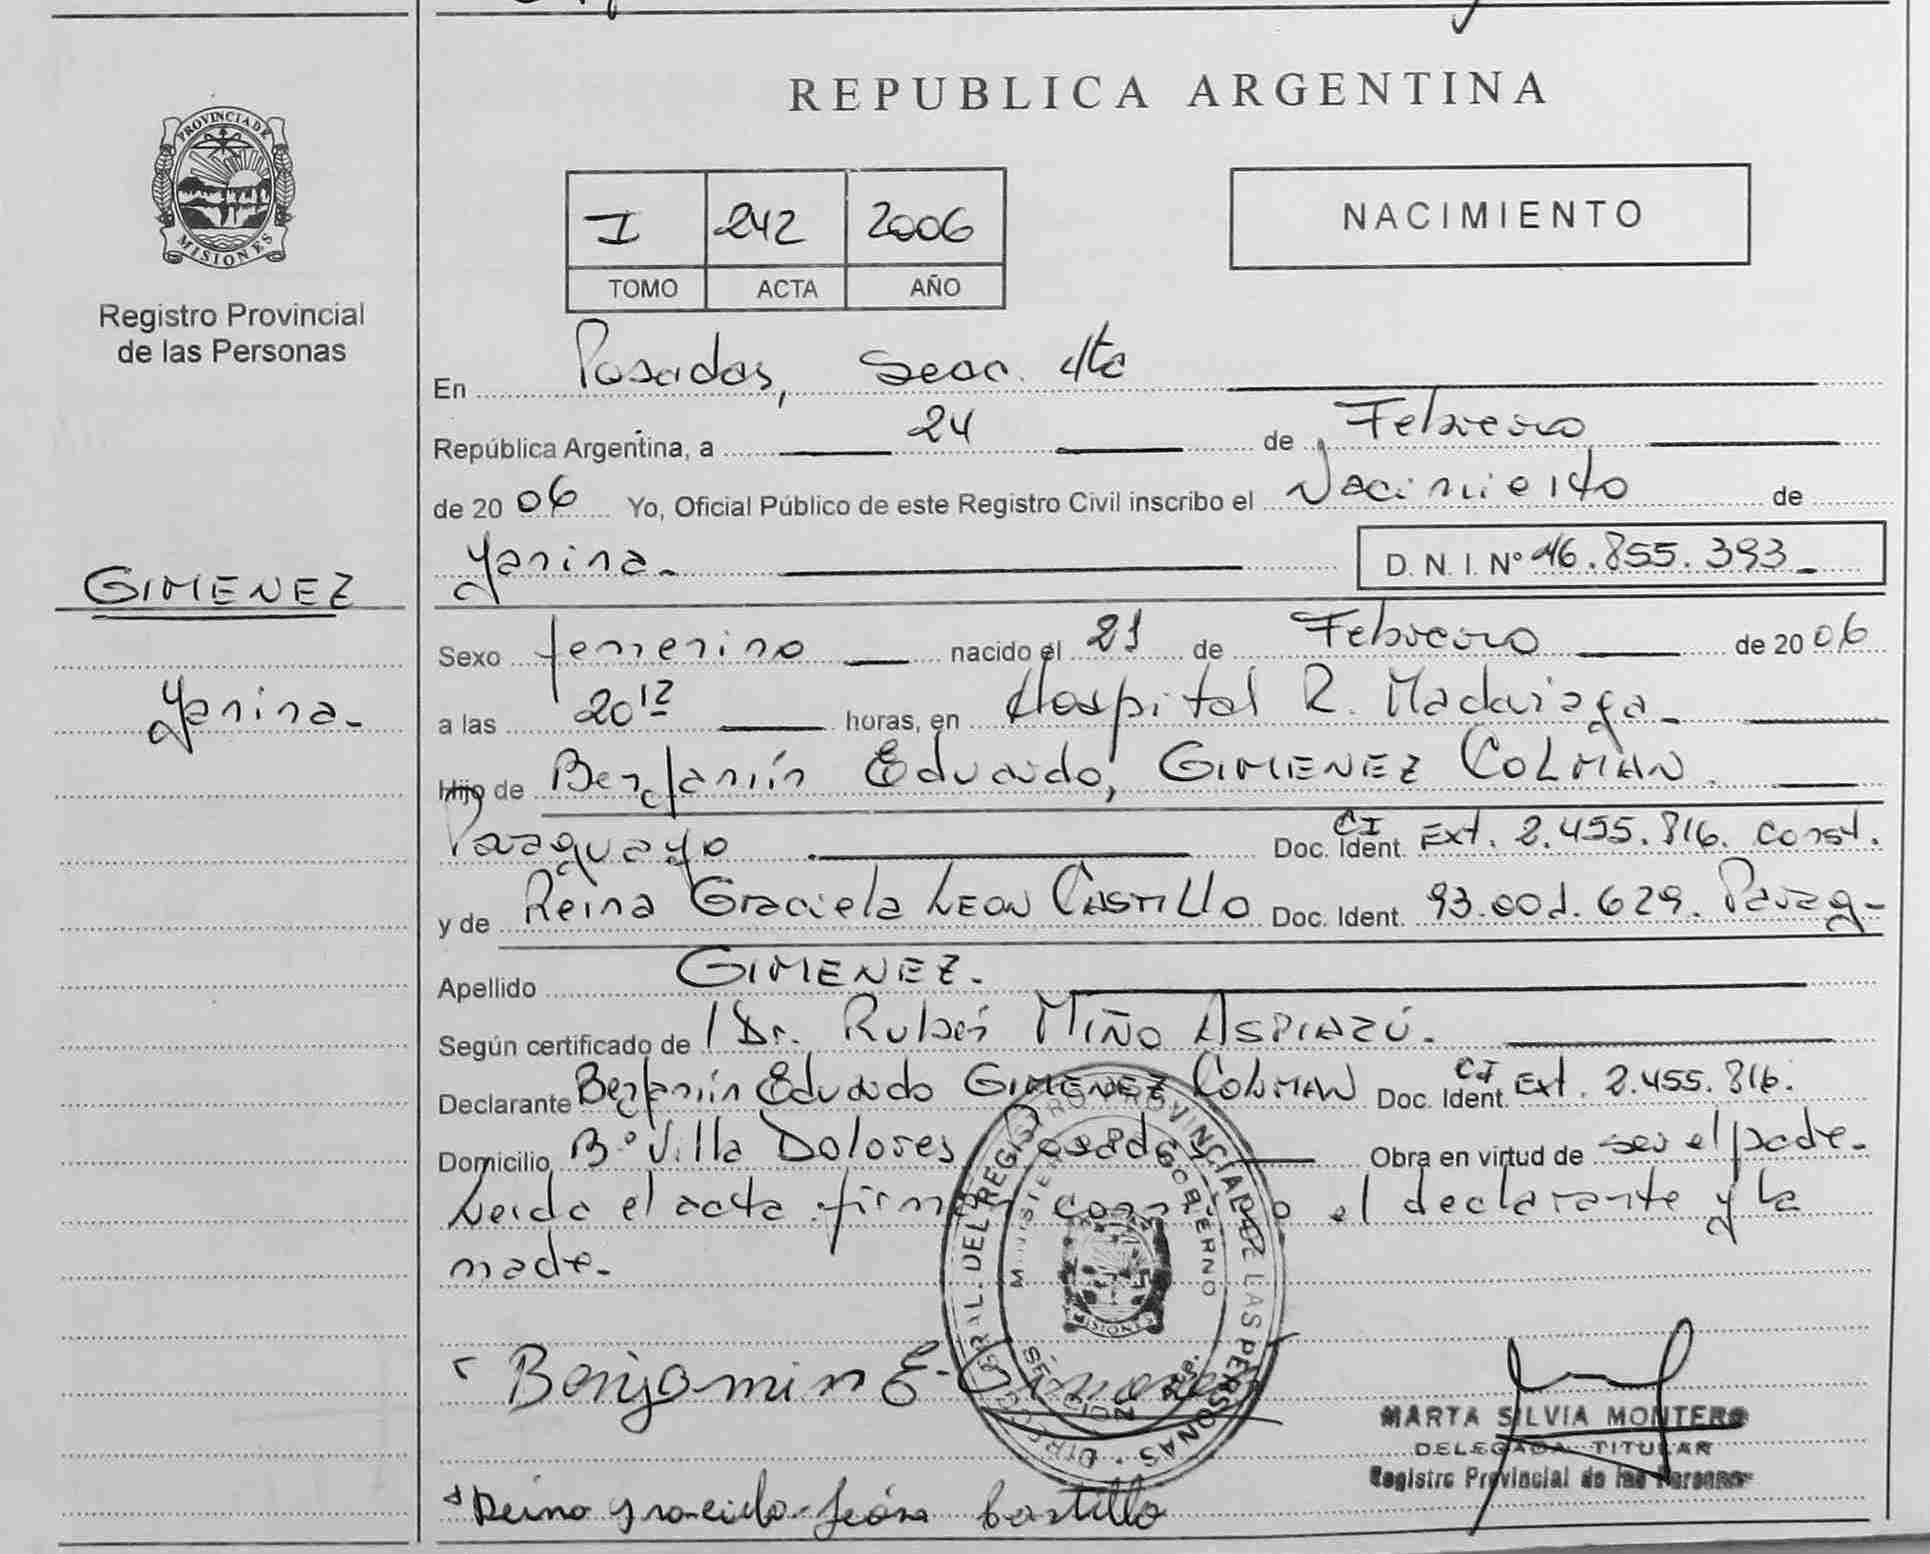 PROVINCIA DE
MISIONES
Registro Provincial
de las Personas
GIMENEZ
Yanina.
REPUBLICA ARGENTINA
I 242 2006
TOMO ACTA AÑO
NACIMIENTO
En Posadas, Secc. 4ta
República Argentina, a 24 de Febrero
de 2006 Yo, Oficial Público de este Registro Civil inscribo el Nacimiento de
Yanina. D. N. I. Nº 46.855.393
Sexo femenino nacido el 21 de Febrero de 2006
a las 20 12 horas, en Hospital R. Madariaga.
Hijo de Benjamín Eduardo, GIMENEZ COLMAN.
Paraguayo Doc. Ident. CI Ext. 2.455.816. Const.
y de Reina Graciela LEON CASTILLO Doc. Ident. 93.001.629. Parag-
Apellido GIMENEZ.
Según certificado de Dr. Rubén MIÑO ASPIAZÚ.
Declarante Benjamín Eduardo GIMENEZ COLMAN Doc. Ident. CI Ext. 2.455.816.
Domicilio Bº Villa Dolores Posadas Obra en virtud de ser el padre.
Leida el acta firman conmigo el declarante y la
madre.
Benjamin E. Gimenez
Reina Graciela León Castillo
DIRECCION GRAL. DEL REGISTRO PROVINCIAL DE LAS PERSONAS
MINISTERIO GOBIERNO
MISIONES
MARTA SILVIA MONTERO
DELEGADA TITULAR
Registro Provincial de las Personas